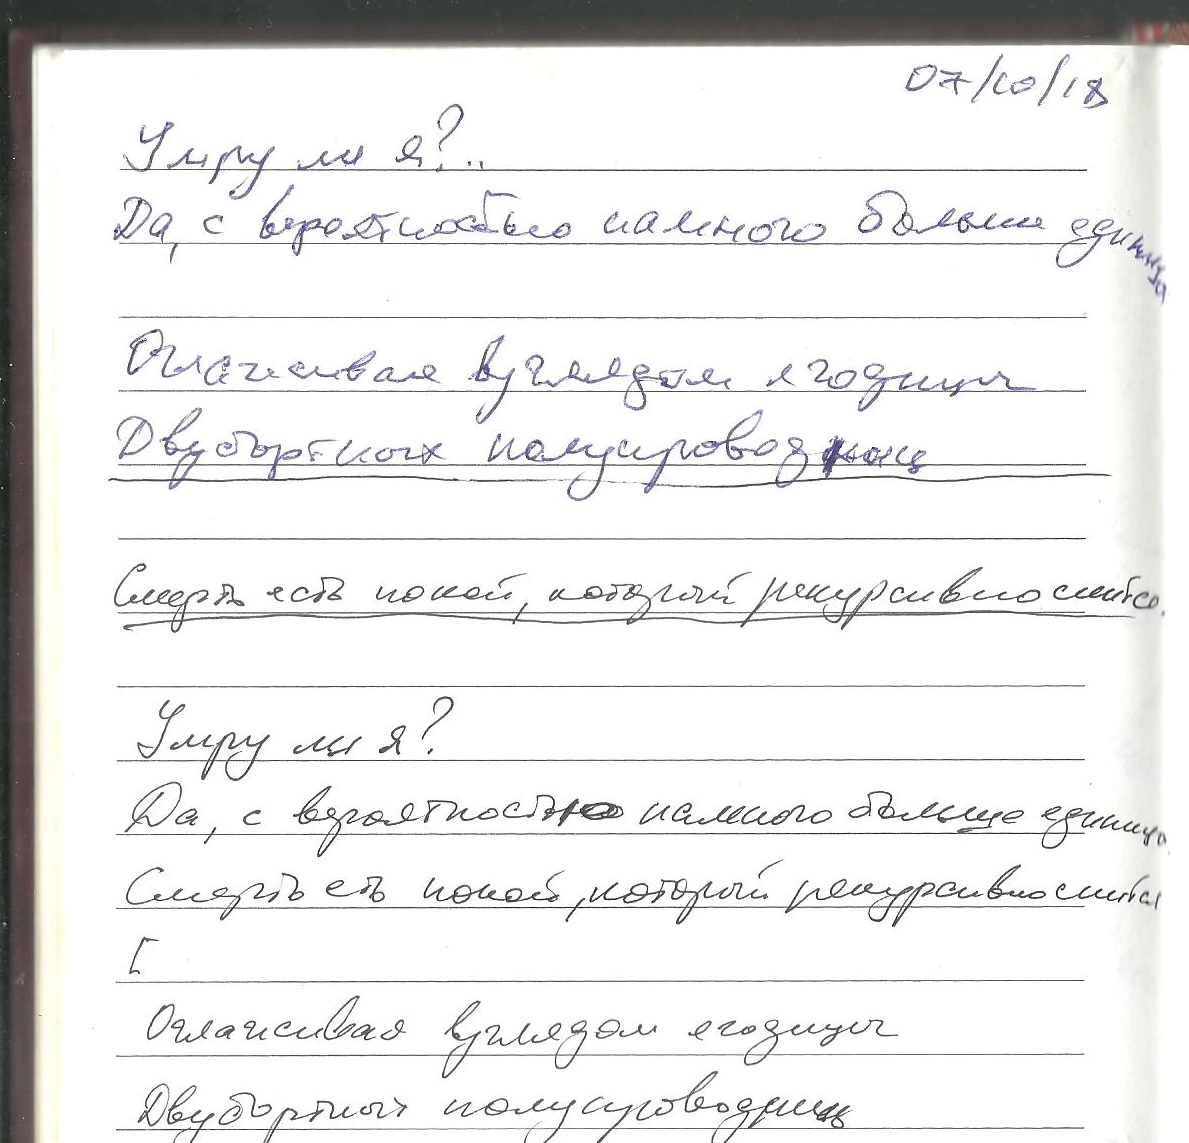 07/10/18
Умру ли я?..
Да, с вероятностью намного больше единицы
Оглаживая взглядом ягодицы
Двубортных полупроводниц
Смерть есть покой, который рекурсивно снится.
Умру ли я?
Да, с вероятностью намного больше единицы
Смерть есть покой, который рекурсивно снится
[
Оглаживая взглядом ягодицы
Двубортных полупроводниц